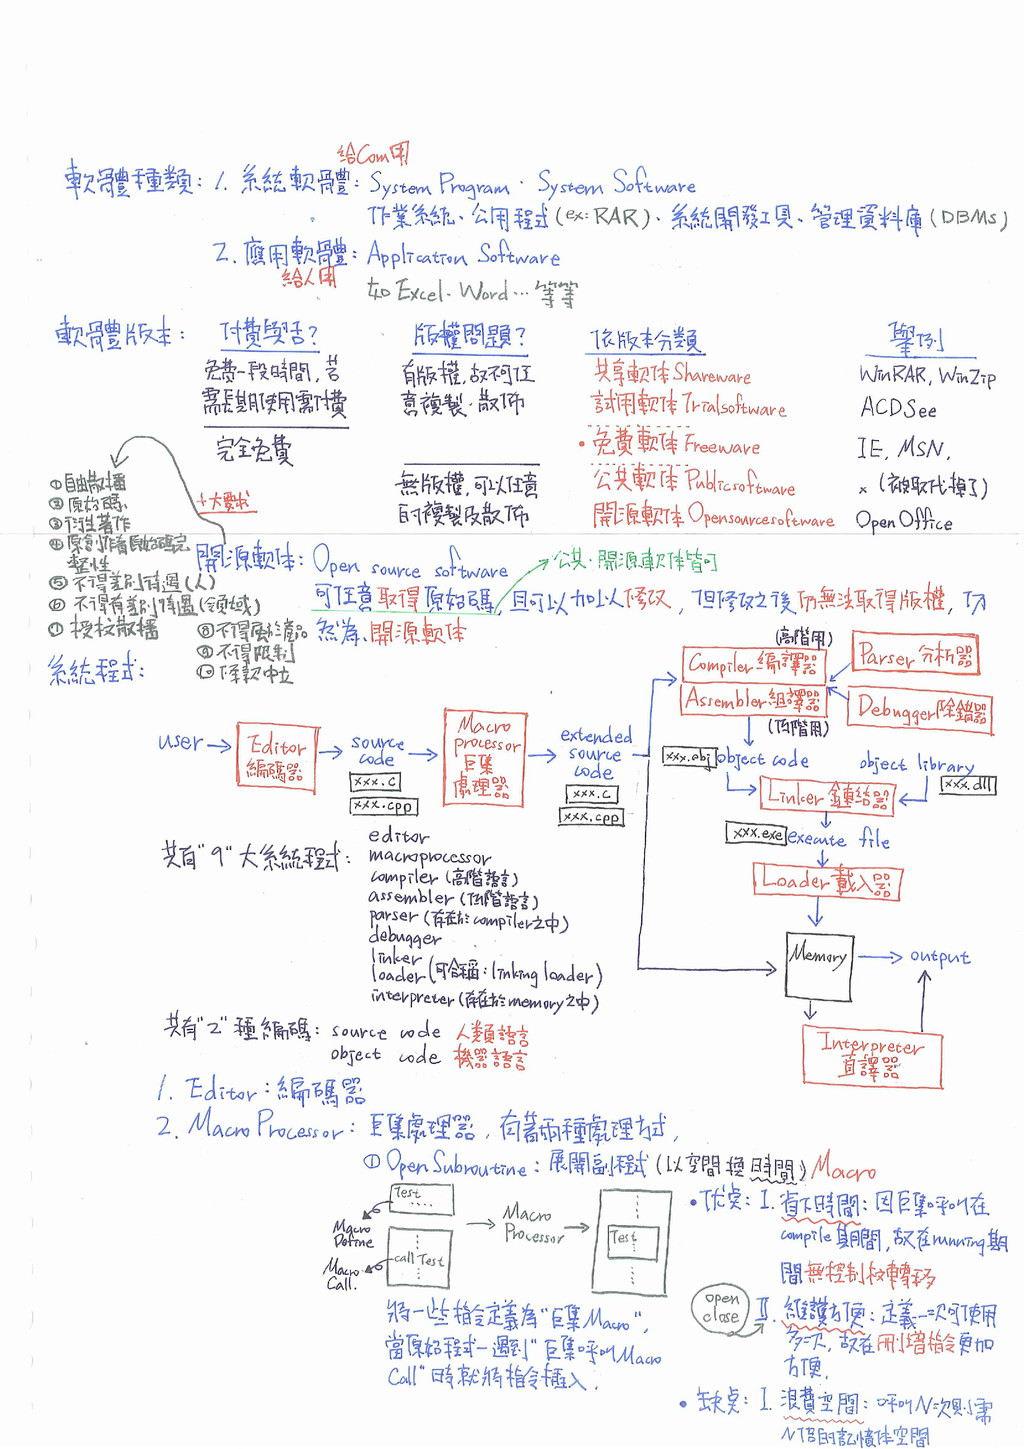 給Com用
軟體種類：1. 系統軟體：System Program · System Software
作業系統、公用程式(ex: RAR)、系統開發工具、管理資料庫(DBMs)
2. 應用軟體：Application Software
給人用
如 Excel · Word … 等等
軟體版本： 付費與否？ 版權問題？ 依版本分類 舉例
免費一段時間，若 有版權，故不可任 共享軟体 Shareware WinRAR, WinZip
需長期使用需付費 意複製·散佈 試用軟体 Trialsoftware ACDSee
完全免費 • 免費軟体 Freeware IE, MSN,
無版權，可以任意 公共軟体 Publicsoftware × (被取代掉了)
的複製及散佈 開源軟体 Opensourcesoftware OpenOffice
十大要求
① 自由散播
② 原始碼
③ 衍生著作
④ 原創作者原始碼完
整性
⑤ 不得差別待遇(人)
⑥ 不得有差別待遇(領域)
⑦ 授權散播
⑧ 不得屬於產品
⑨ 不得限制
⑩ 條款中立
開源軟体：Open source software
公共·開源軟体皆可
可任意取得原始碼，且可以加以修改，但修改之後仍無法取得版權，仍
然為 開源軟体
系統程式：
(高階用)
Compiler 編譯器
Parser 分析器
Assembler 組譯器
(低階用)
Debugger 除錯器
user
Editor
編碼器
source
code
xxx.c
xxx.cpp
Macro
processor
巨集
處理器
extended
source
code
xxx.c
xxx.cpp
xxx.obj object code
object library
xxx.dll
Linker 鏈結器
xxx.exe execute file
Loader 載入器
Memory
output
Interpreter
直譯器
共有"9"大系統程式：
editor
macroprocessor
compiler (高階語言)
assembler (低階語言)
parser (存在於compiler之中)
debugger
linker
loader (可合稱：linking loader)
interpreter (存在於memory之中)
共有"2"種編碼：source code 人類語言
object code 機器語言
1. Editor：編碼器
2. Macro Processor：巨集處理器，有著兩種處理方式，
① Open Subroutine：展開副程式 (以空間換時間) Macro
Test
Macro
Define
call Test
Macro
Call.
Macro
Processor
Test
將一些指令定義為"巨集Macro"，
當原始程式一遇到"巨集呼叫Macro
Call"時就將指令插入.
• 优点：I. 省下時間：因巨集呼叫在
compile期間，故在running期
間無控制權轉移
open
close
II. 維護方便：定義一次可使用
多次，故在刪增指令更加
方便.
• 缺点：I. 浪費空間：呼叫N次則需
N倍的記憶体空間